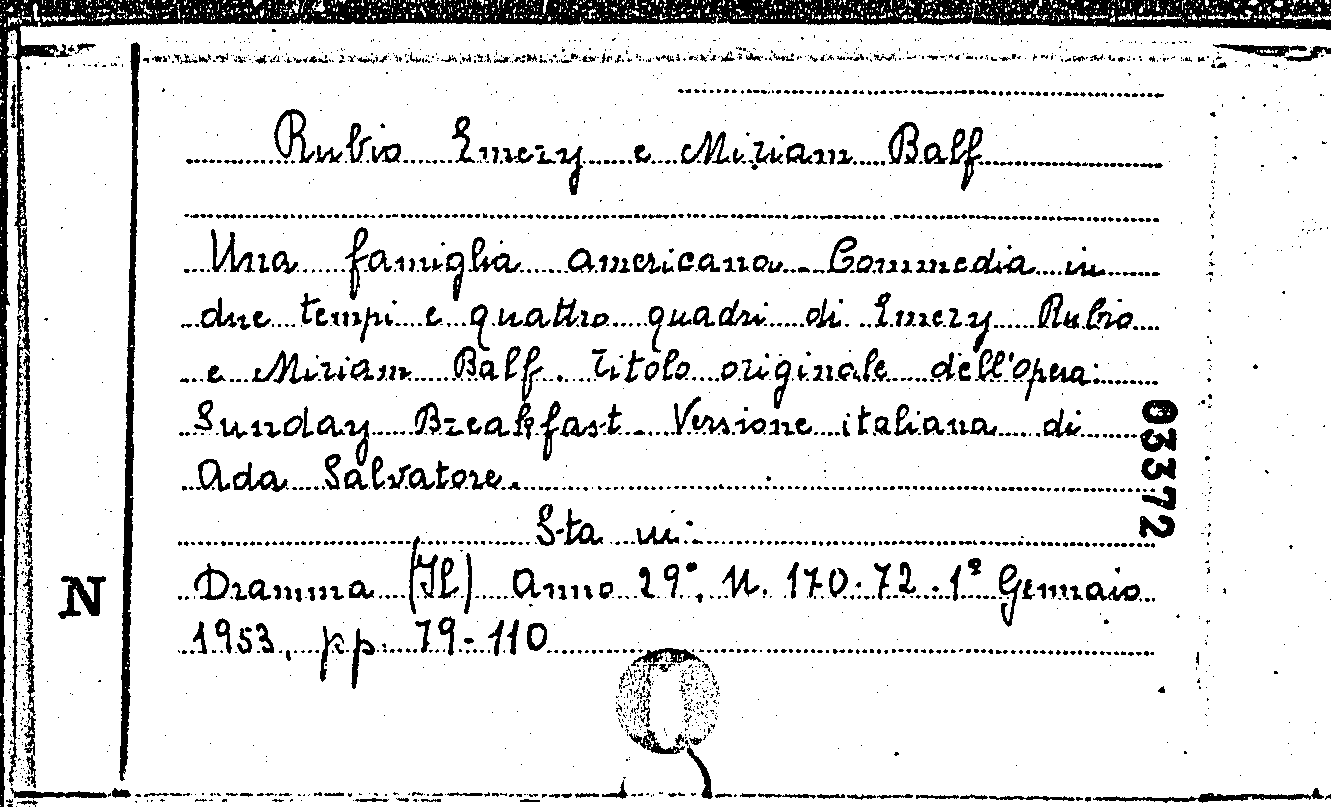 Rubio Emery e Miriam Balf
Una famiglia americana. Commedia in
due tempi e quattro quadri di Emery Rubio
e Miriam Balf. Titolo originale dell'opera:
Sunday Breakfast. Versione italiana di
Ada Salvatore.
Sta in:
Dramma (Il) Anno 29°, N. 170-72. 1° Gennaio
1953, pp. 79-110
N
03372